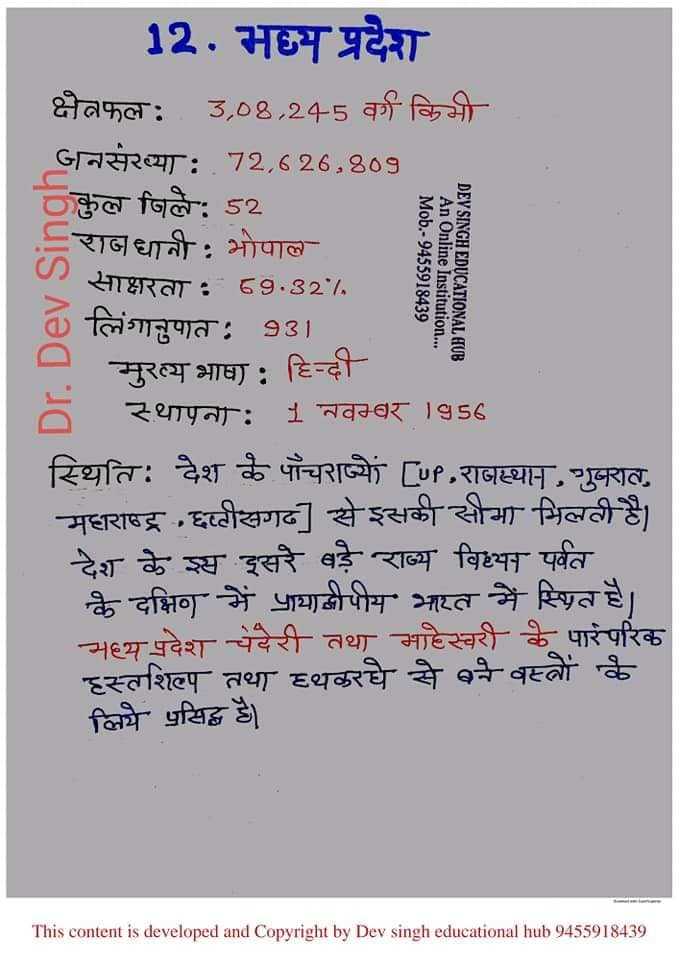 12. मध्य प्रदेश
क्षेत्रफल: 3,08,245 वर्ग किमी
जनसंख्या: 72,626,809
कुल जिले: 52
राजधानी: भोपाल
साक्षरता: 69.32%
लिंगानुपात: 931
मुख्य भाषा: हिन्दी
स्थापना: 1 नवम्बर 1956
स्थिति: देश के पाँचराज्यों [UP, राजस्थान, गुजरात,
महाराष्ट्र, छत्तीसगढ] से इसकी सीमा मिलती है।
देश के इस दूसरे बड़े राज्य विंध्यन पर्वत
के दक्षिण में प्रायाद्वीपीय भारत में स्थित है।
मध्य प्रदेश चंदेरी तथा माहेस्वरी के पारंपरिक
हस्तशिल्प तथा हथकरघे से बने वस्त्रों के
लिये प्रसिद्ध है।
Dr. Dev Singh
DEV SINGH EDUCATIONAL HUB
An Online Institution...
Mob.- 9455918439
This content is developed and Copyright by Dev singh educational hub 9455918439